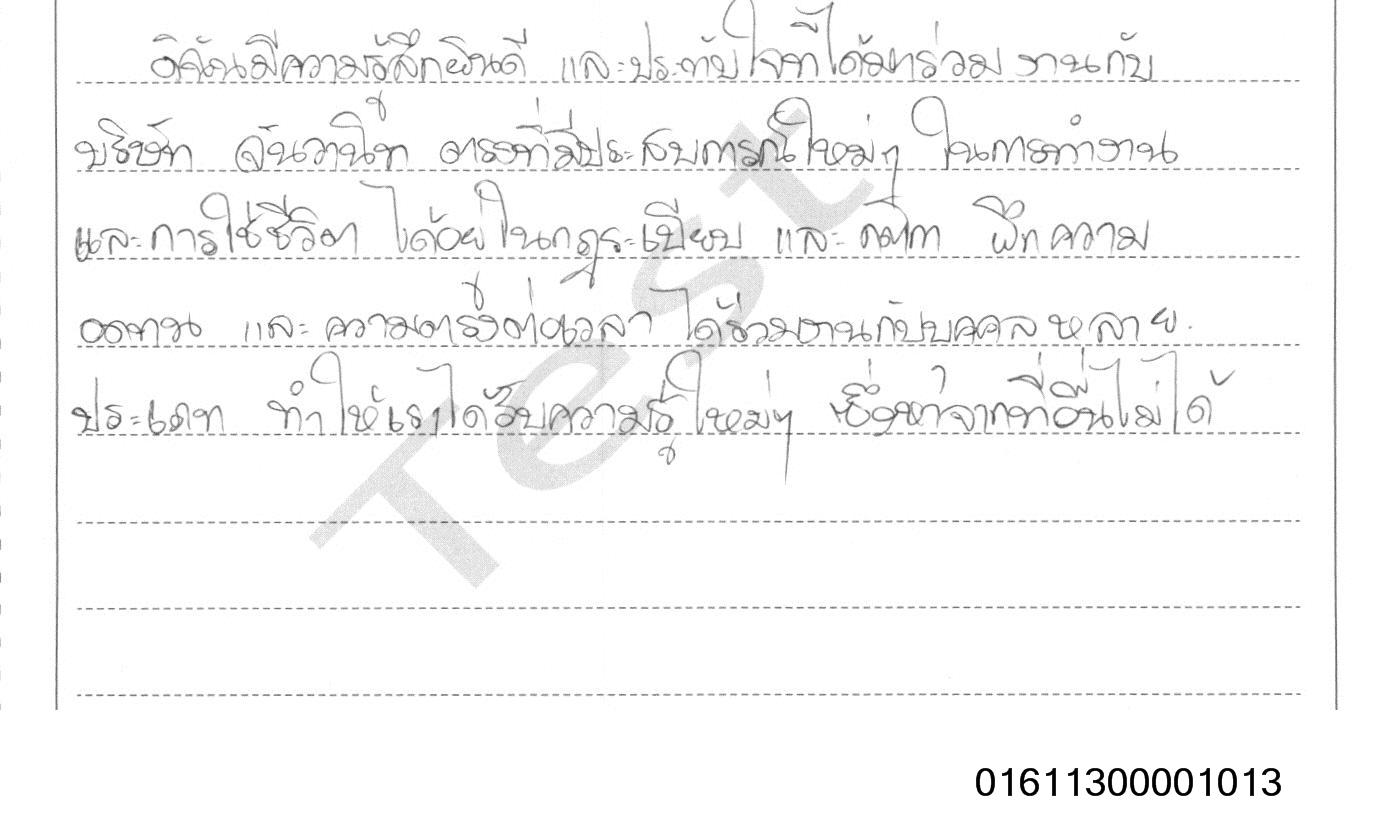 ดิฉันมีความรู้สึกยินดี และประทับใจที่ได้มาร่วมงานกับ
บริษัท จันวานิชู ตรงที่มีประสบการณ์ใหม่ๆ ในการทำงาน
และการใช้ชีวิต ได้อยู่ในกฎระเบียบ และ กติกา ฝึกความ
อดทน และ ความตรงต่อเวลา ได้ร่วมงานกับบุคคลหลาย
ประเภท ทำให้เราได้รับความรู้ใหม่ๆ ซึ่งหาจากที่อื่นไม่ได้
Test
01611300001013